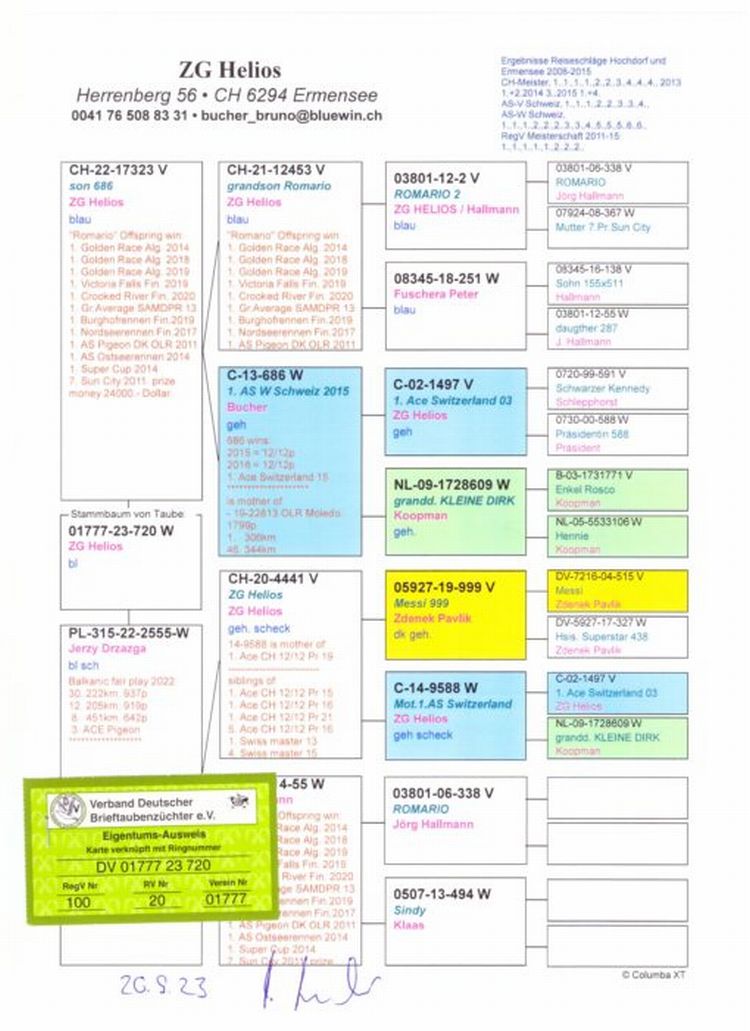 ZG Helios
Herrenberg 56 • CH 6294 Ermensee
0041 76 508 83 31 • bucher_bruno@bluewin.ch
Ergebnisse Reiseschläge Hochdorf und
Ermensee 2008-2015
CH-Meister, 1.,1.,1.,1.,2.,2.,3.,4.,4.,4., 2013
1.+2.2014 3.,2015 1.+4.
AS-V Schweiz, 1.,1.,1.,2.,2.,3.,3.,4.,
AS-W Schweiz,
1.,1.,1.,2.,2.,2.,3.,3.,4.,5.,5.,5.,6.,6.,
RegV Meisterschaft 2011-15
1.,1.,1.,1.,1.,2.,2.,2.,
CH-22-17323 V
son 686
ZG Helios
blau
"Romario" Offspring win
1. Golden Race Alg. 2014
1. Golden Race Alg. 2018
1. Golden Race Alg. 2019
1. Victoria Falls Fin. 2019
1. Crooked River Fin. 2020
1. Gr.Average SAMDPR 13
1. Burghofrennen Fin.2019
1. Nordseerennen Fin.2017
1. AS Pigeon DK OLR 2011
1. AS Ostseerennen 2014
1. Super Cup 2014
7. Sun City 2011 prize
money 24000.- Dollar.
Stammbaum von Taube:
01777-23-720 W
ZG Helios
bl
PL-315-22-2555-W
Jerzy Drzazga
bl sch
Balkanic fair play 2022
30. 222km 937p
12. 205km 919p
8. 451km 642p
3. ACE Pigeon
CH-21-12453 V
grandson Romario
ZG Helios
blau
"Romario" Offspring win
1. Golden Race Alg. 2014
1. Golden Race Alg. 2018
1. Golden Race Alg. 2019
1. Victoria Falls Fin. 2019
1. Crooked River Fin. 2020
1. Gr.Average SAMDPR 13
1. Burghofrennen Fin.2019
1. Nordseerennen Fin.2017
1. AS Pigeon DK OLR 2011
C-13-686 W
1. AS W Schweiz 2015
Bucher
geh
686 wins:
2015 = 12/12p
2016 = 12/12p
1. Ace Switzerland 15
is mother of
- 19-22813 OLR Moledo
1799p
1. 306km
46. 344km
CH-20-4441 V
ZG Helios
ZG Helios
geh. scheck
14-9588 is mother of
1. Ace CH 12/12 Pr 19
siblings of
1. Ace CH 12/12 Pr 15
1. Ace CH 12/12 Pr 16
1. Ace CH 12/12 Pr 21
5. Ace CH 12/12 Pr 16
1. Swiss master 13
4. Swiss master 15
4-55 W
nn
Offspring win:
Race Alg. 2014
Race Alg. 2018
Race Alg. 2019
Falls Fin. 2019
River Fin. 2020
age SAMDPR 13
ennen Fin.2019
ennen Fin.2017
1. AS Pigeon DK OLR 2011
1. AS Ostseerennen 2014
1. Super Cup 2014
7. Sun City 2011 prize
03801-12-2 V
ROMARIO 2
ZG HELIOS / Hallmann
blau
08345-18-251 W
Fuschera Peter
blau
C-02-1497 V
1. Ace Switzerland 03
ZG Helios
geh
NL-09-1728609 W
grandd. KLEINE DIRK
Koopman
geh.
05927-19-999 V
Messi 999
Zdenek Pavlik
dk geh.
C-14-9588 W
Mot.1.AS Switzerland
ZG Helios
geh scheck
03801-06-338 V
ROMARIO
Jörg Hallmann
0507-13-494 W
Sindy
Klaas
03801-06-338 V
ROMARIO
Jörg Hallmann
07924-08-367 W
Mutter 7.Pr Sun City
08345-16-138 V
Sohn 155x511
Hallmann
03801-12-55 W
daugther 287
J. Hallmann
0720-99-591 V
Schwarzer Kennedy
Schlepphorst
0730-00-588 W
Präsidentin 588
Präsident
B-03-1731771 V
Enkel Rosco
Koopman
NL-05-5533106 W
Hennie
Koopman
DV-7216-04-515 V
Messi
Zdenek Pavlik
DV-5927-17-327 W
Hsis. Superstar 438
Zdenek Pavlik
C-02-1497 V
1. Ace Switzerland 03
ZG Helios
NL-09-1728609 W
grandd. KLEINE DIRK
Koopman
Verband Deutscher
Brieftaubenzüchter e.V.
Eigentums-Ausweis
Karte verknüpft mit Ringnummer
DV 01777 23 720
RegV Nr RV Nr Verein Nr
100 20 01777
© Columba XT
20.9.23